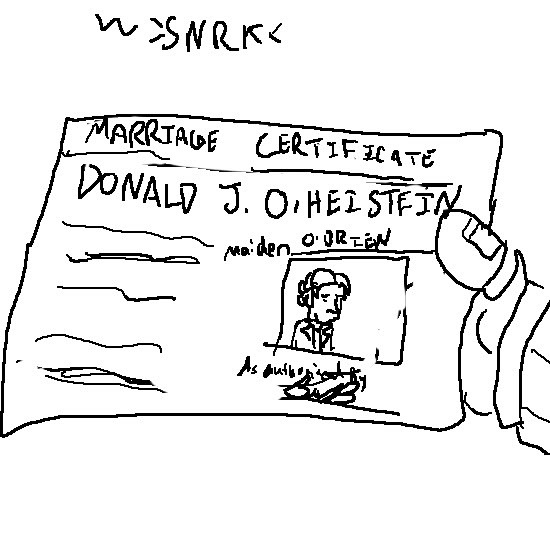 >SNRK<
MARRIAGE CERTIFICATE
DONALD J. O'HEISTEIN
maiden O'BRIEN
As authorized by